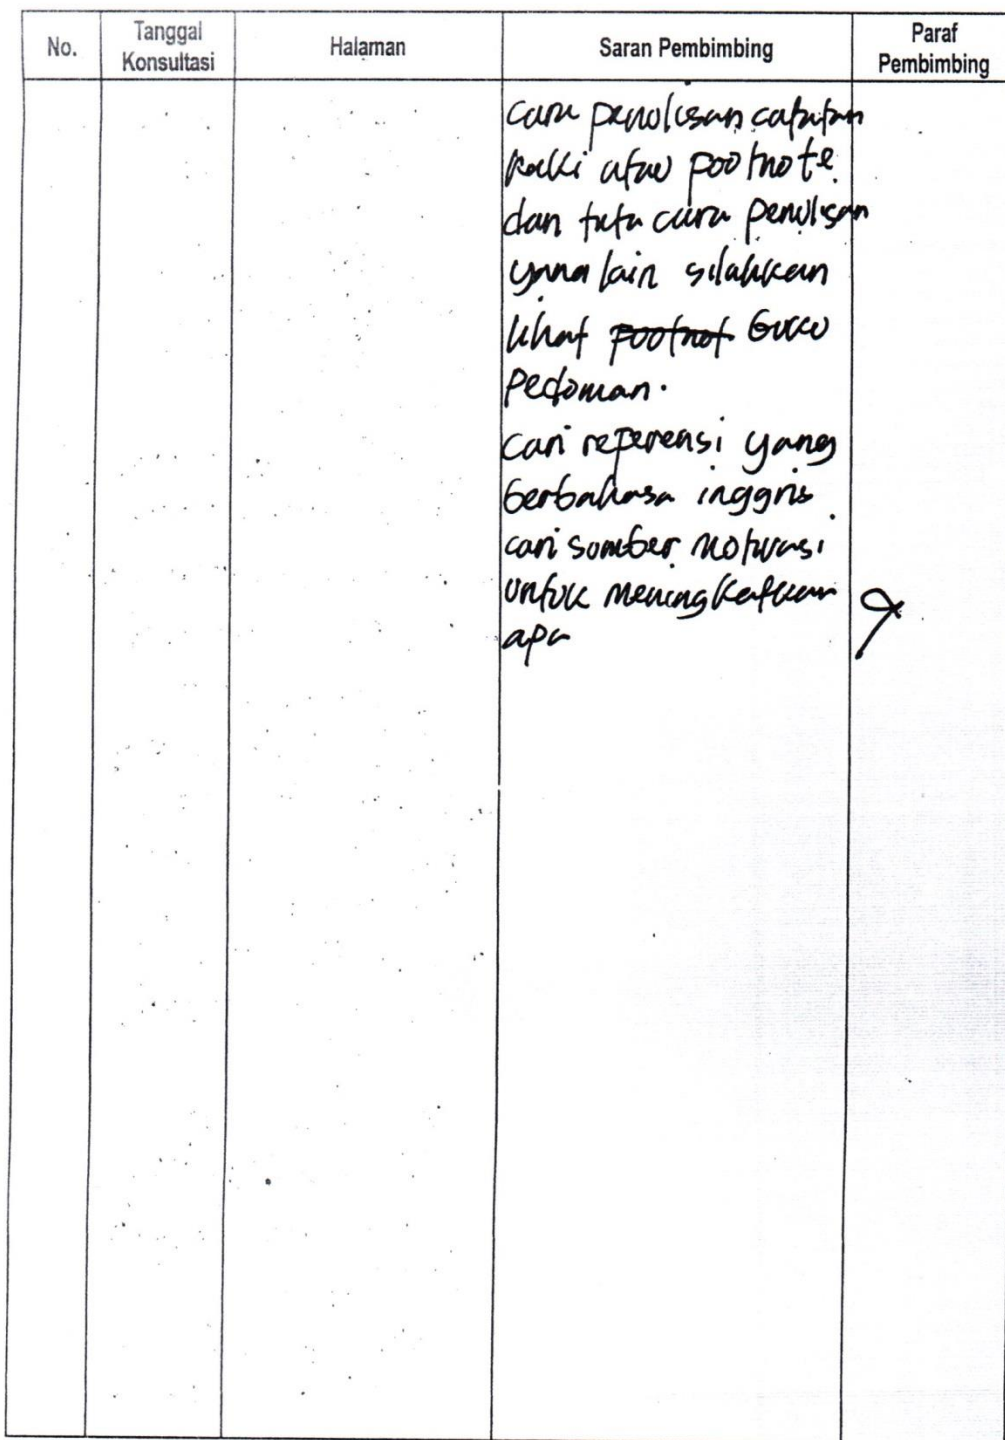 No.
Tanggal
Konsultasi
Halaman
Saran Pembimbing
Paraf
Pembimbing
cara penulisan catatan
kaki atau footnote
dan tata cara penulisan
yang lain silahkan
lihat footnot buku
Pedoman.
cari referensi yang
berbahasa inggris
cari sumber motivasi
untuk meningkatkan
apa